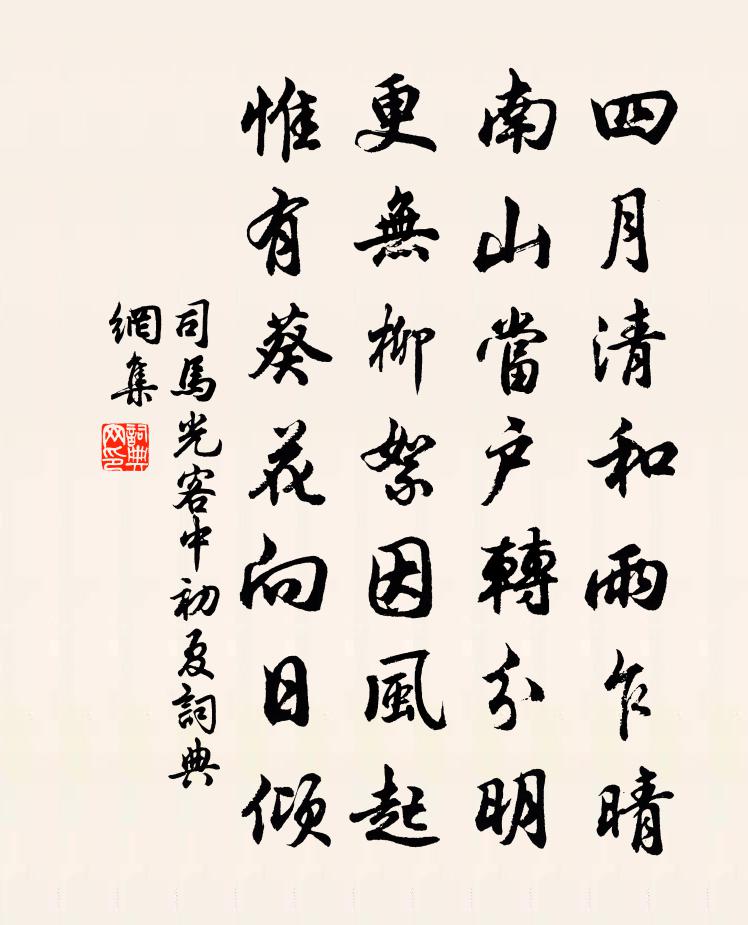 四月清和雨乍晴
南山當户轉分明
更無柳絮因風起
惟有葵花向日傾
司馬光客中初夏詞典
網集
詞典網印